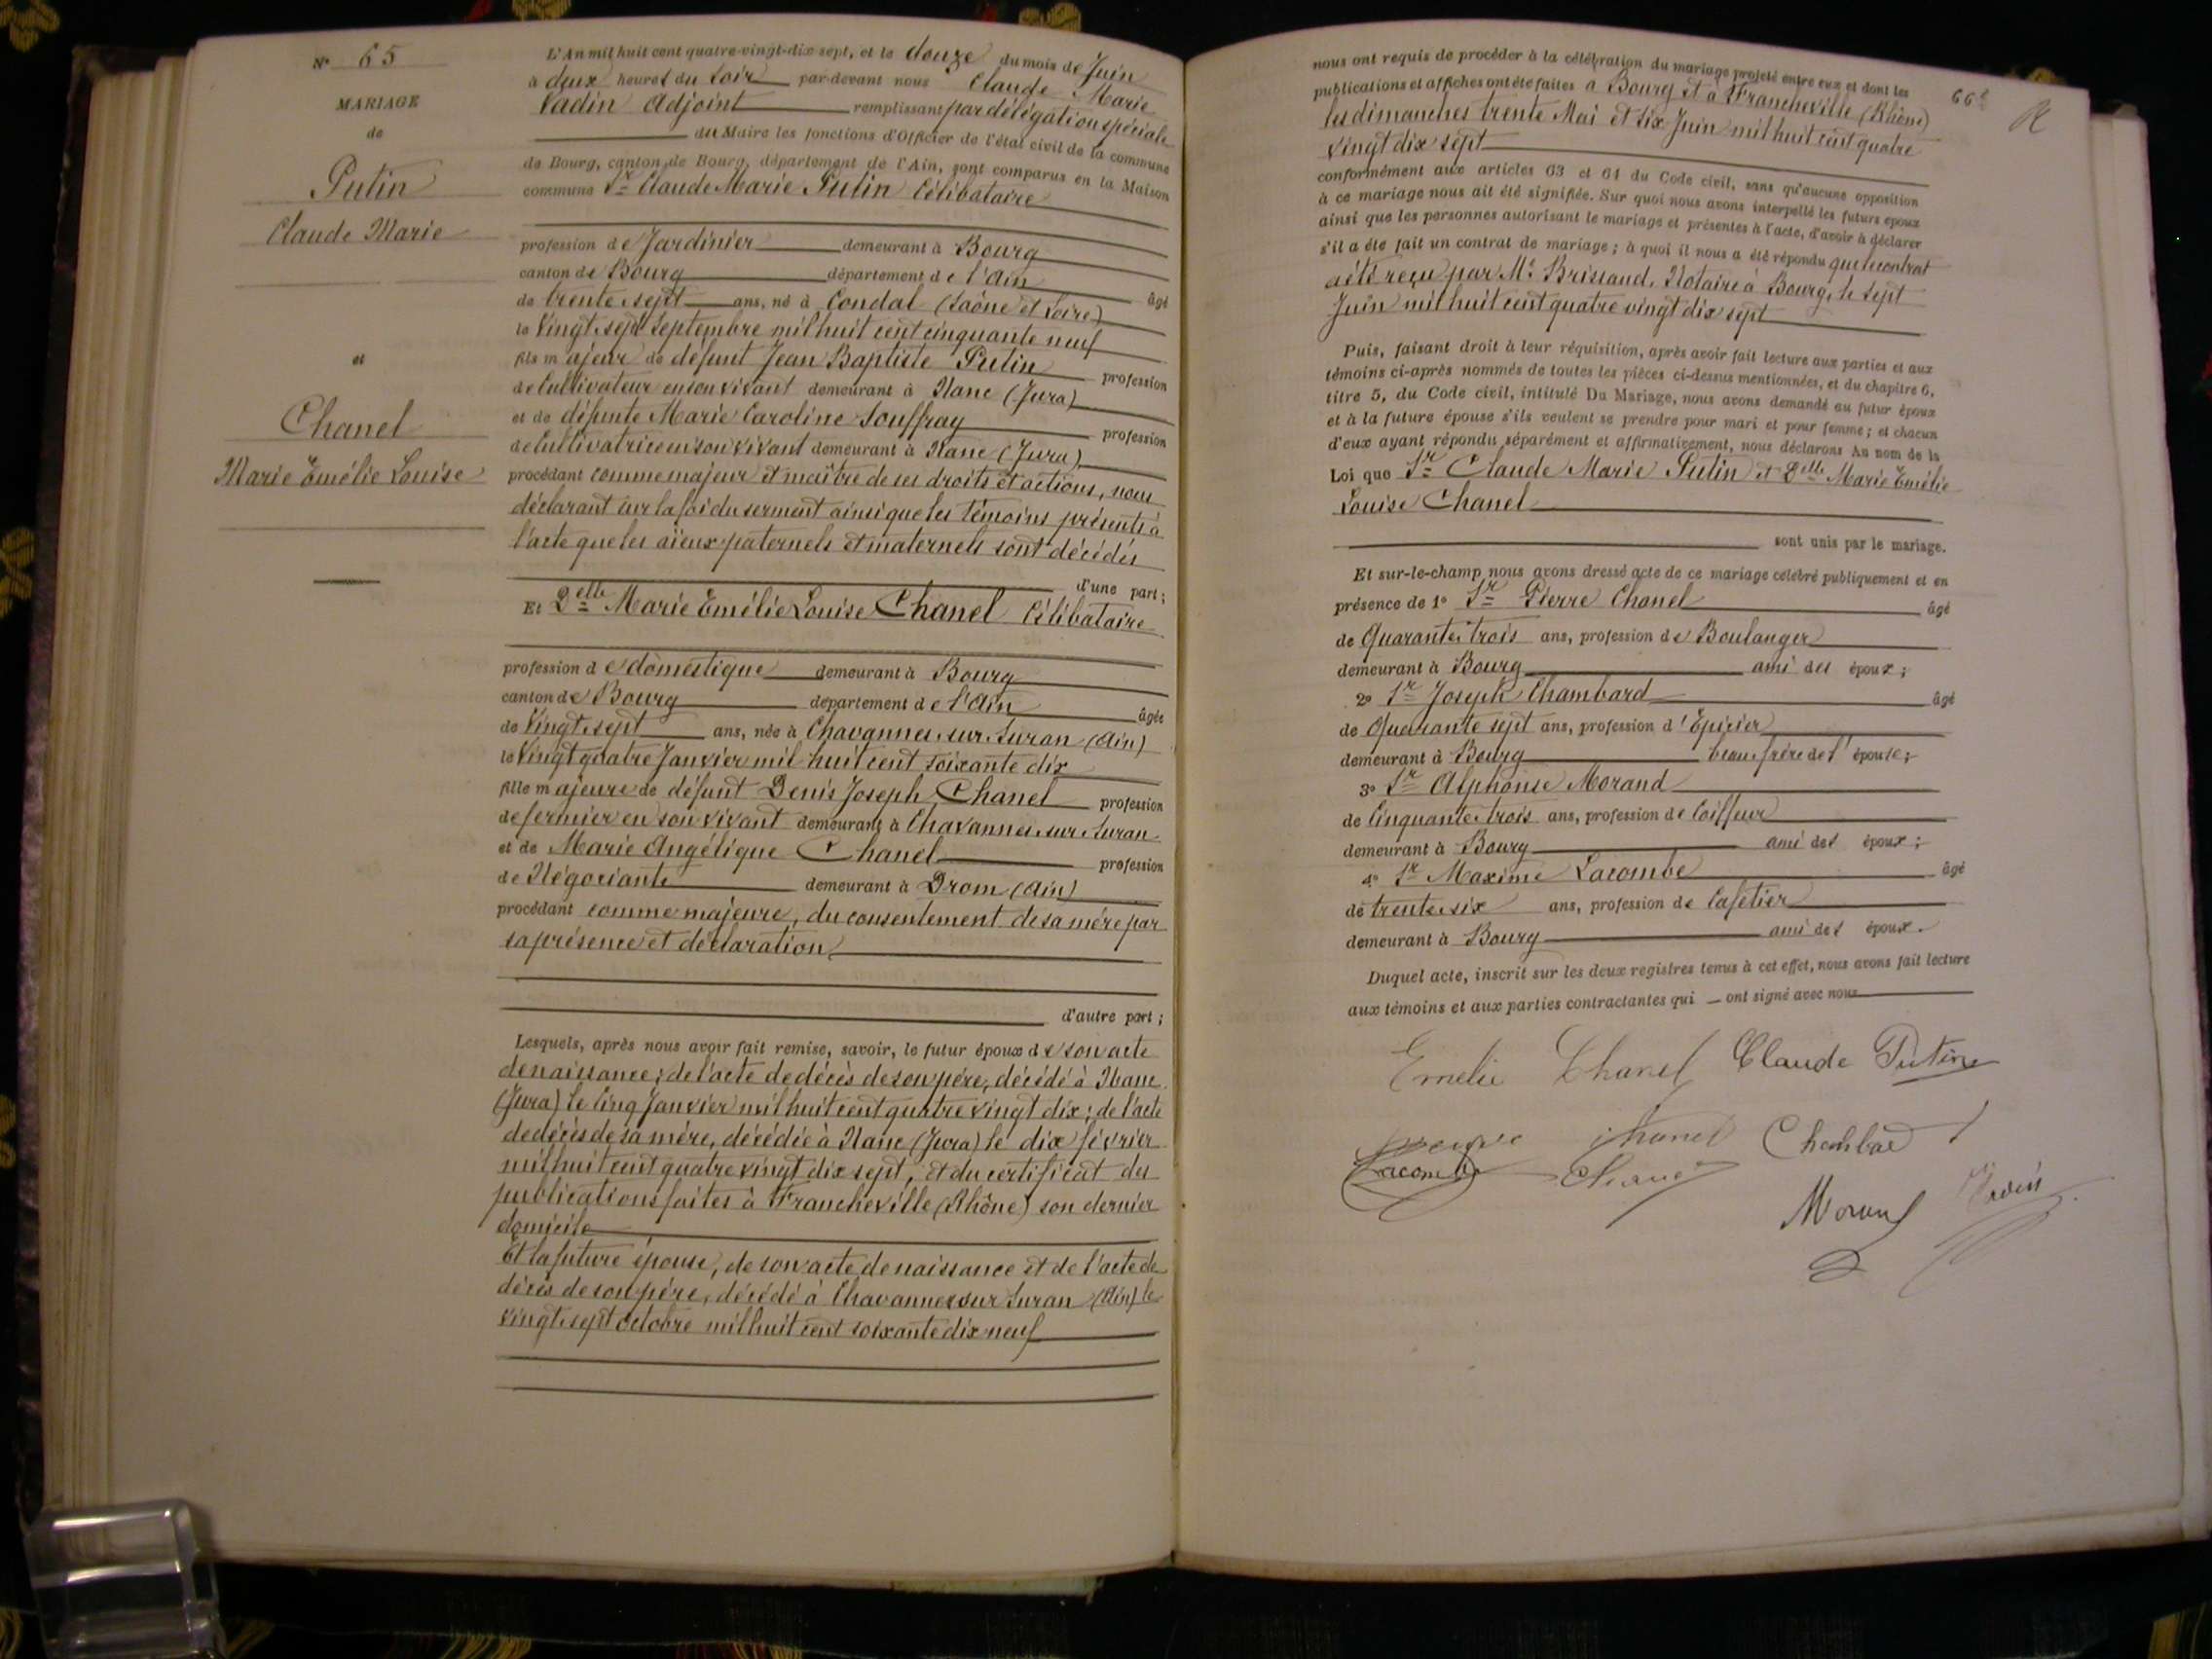 N° 65
MARIAGE
de
Putin
Claude Marie
et
Chanel
Marie Emélie Louise
L'An mil huit cent quatre-vingt-dix sept, et le douze du mois de Juin
à deux heures du Soir par-devant nous Claude Marie
Vadin Adjoint remplissant par délégation spéciale
du Maire les fonctions d'Officier de l'état civil de la commune
de Bourg, canton de Bourg, département de l'Ain, sont comparus en la Maison
commune Sr Claude Marie Putin Célibataire
profession de Jardinier demeurant à Bourg
canton de Bourg département de l'Ain âgé
de trente sept ans, né à Condal (Saône et Loire)
le Vingt sept Septembre mil huit cent cinquante neuf
fils majeur de défunt Jean Baptiste Putin profession
de Cultivateur en son vivant demeurant à Nanc (Jura)
et de défunte Marie Caroline Souffray profession
de Cultivatrice en son vivant demeurant à Nanc (Jura)
procédant comme majeur et maître de ses droits et actions, nous
déclarant sur la foi du serment ainsi que les témoins présents à
l'acte que les aïeux paternels et maternels sont décédés
d'une part;
Et Delle Marie Emélie Louise Chanel Célibataire
profession de domestique demeurant à Bourg
canton de Bourg département de l'Ain âgée
de Vingt sept ans, née à Chavannes sur Suran (Ain)
le Vingt quatre Janvier mil huit cent soixante dix
fille majeure de défunt Denis Joseph Chanel profession
de fermier en son vivant demeurant à Chavannes sur Suran
et de Marie Angélique Chanel profession
de Négociante demeurant à Drom (Ain)
procédant comme majeure, du consentement de sa mère par
sa présence et déclaration
d'autre part;
Lesquels, après nous avoir fait remise, savoir, le futur époux de son acte
de naissance; de l'acte de décès de son père, décédé à Nanc
(Jura) le Cinq Janvier mil huit cent quatre vingt dix; de l'acte
de décès de sa mère, décédée à Nanc (Jura) le dix février
mil huit cent quatre vingt dix sept, et du certificat des
publications faites à Francheville (Rhône) son dernier
domicile
Et la future épouse, de son acte de naissance et de l'acte de
décès de son père, décédé à Chavannes sur Suran (Ain) le
vingt sept octobre mil huit cent soixante dix neuf
66
nous ont requis de procéder à la célébration du mariage projeté entre eux et dont les
publications et affiches ont été faites à Bourg et à Francheville (Rhône)
les dimanches trente Mai et six Juin mil huit cent quatre
vingt dix sept
conformément aux articles 63 et 64 du Code civil, sans qu'aucune opposition
à ce mariage nous ait été signifiée. Sur quoi nous avons interpellé les futurs époux
ainsi que les personnes autorisant le mariage et présentes à l'acte, d'avoir à déclarer
s'il a été fait un contrat de mariage; à quoi il nous a été répondu que le contrat
a été reçu par Me Brissaud, Notaire à Bourg, le sept
Juin mil huit cent quatre vingt dix sept
Puis, faisant droit à leur réquisition, après avoir fait lecture aux parties et aux
témoins ci-après nommés de toutes les pièces ci-dessus mentionnées, et du chapitre 6,
titre 5, du Code civil, intitulé Du Mariage, nous avons demandé au futur époux
et à la future épouse s'ils veulent se prendre pour mari et pour femme; et chacun
d'eux ayant répondu séparément et affirmativement, nous déclarons Au nom de la
Loi que Sr Claude Marie Putin et Delle Marie Emélie
Louise Chanel
sont unis par le mariage.
Et sur-le-champ nous avons dressé acte de ce mariage célébré publiquement et en
présence de 1° Sr Pierre Chanel âgé
de Quarante trois ans, profession de Boulanger
demeurant à Bourg ami des époux;
2° Sr Joseph Chambard âgé
de Quarante sept ans, profession d'Epicier
demeurant à Bourg beau frère de l'épouse;
3° Sr Alphonse Morand
de Cinquante trois ans, profession de Coiffeur
demeurant à Bourg ami des époux;
4° Sr Maxime Lacombe âgé
de trente six ans, profession de Cafetier
demeurant à Bourg ami des époux.
Duquel acte, inscrit sur les deux registres tenus à cet effet, nous avons fait lecture
aux témoins et aux parties contractantes qui ont signé avec nous
Emelie Chanel Claude Putin
veuve Chanel Chambard
Lacombe Chanel
Morand Vadin